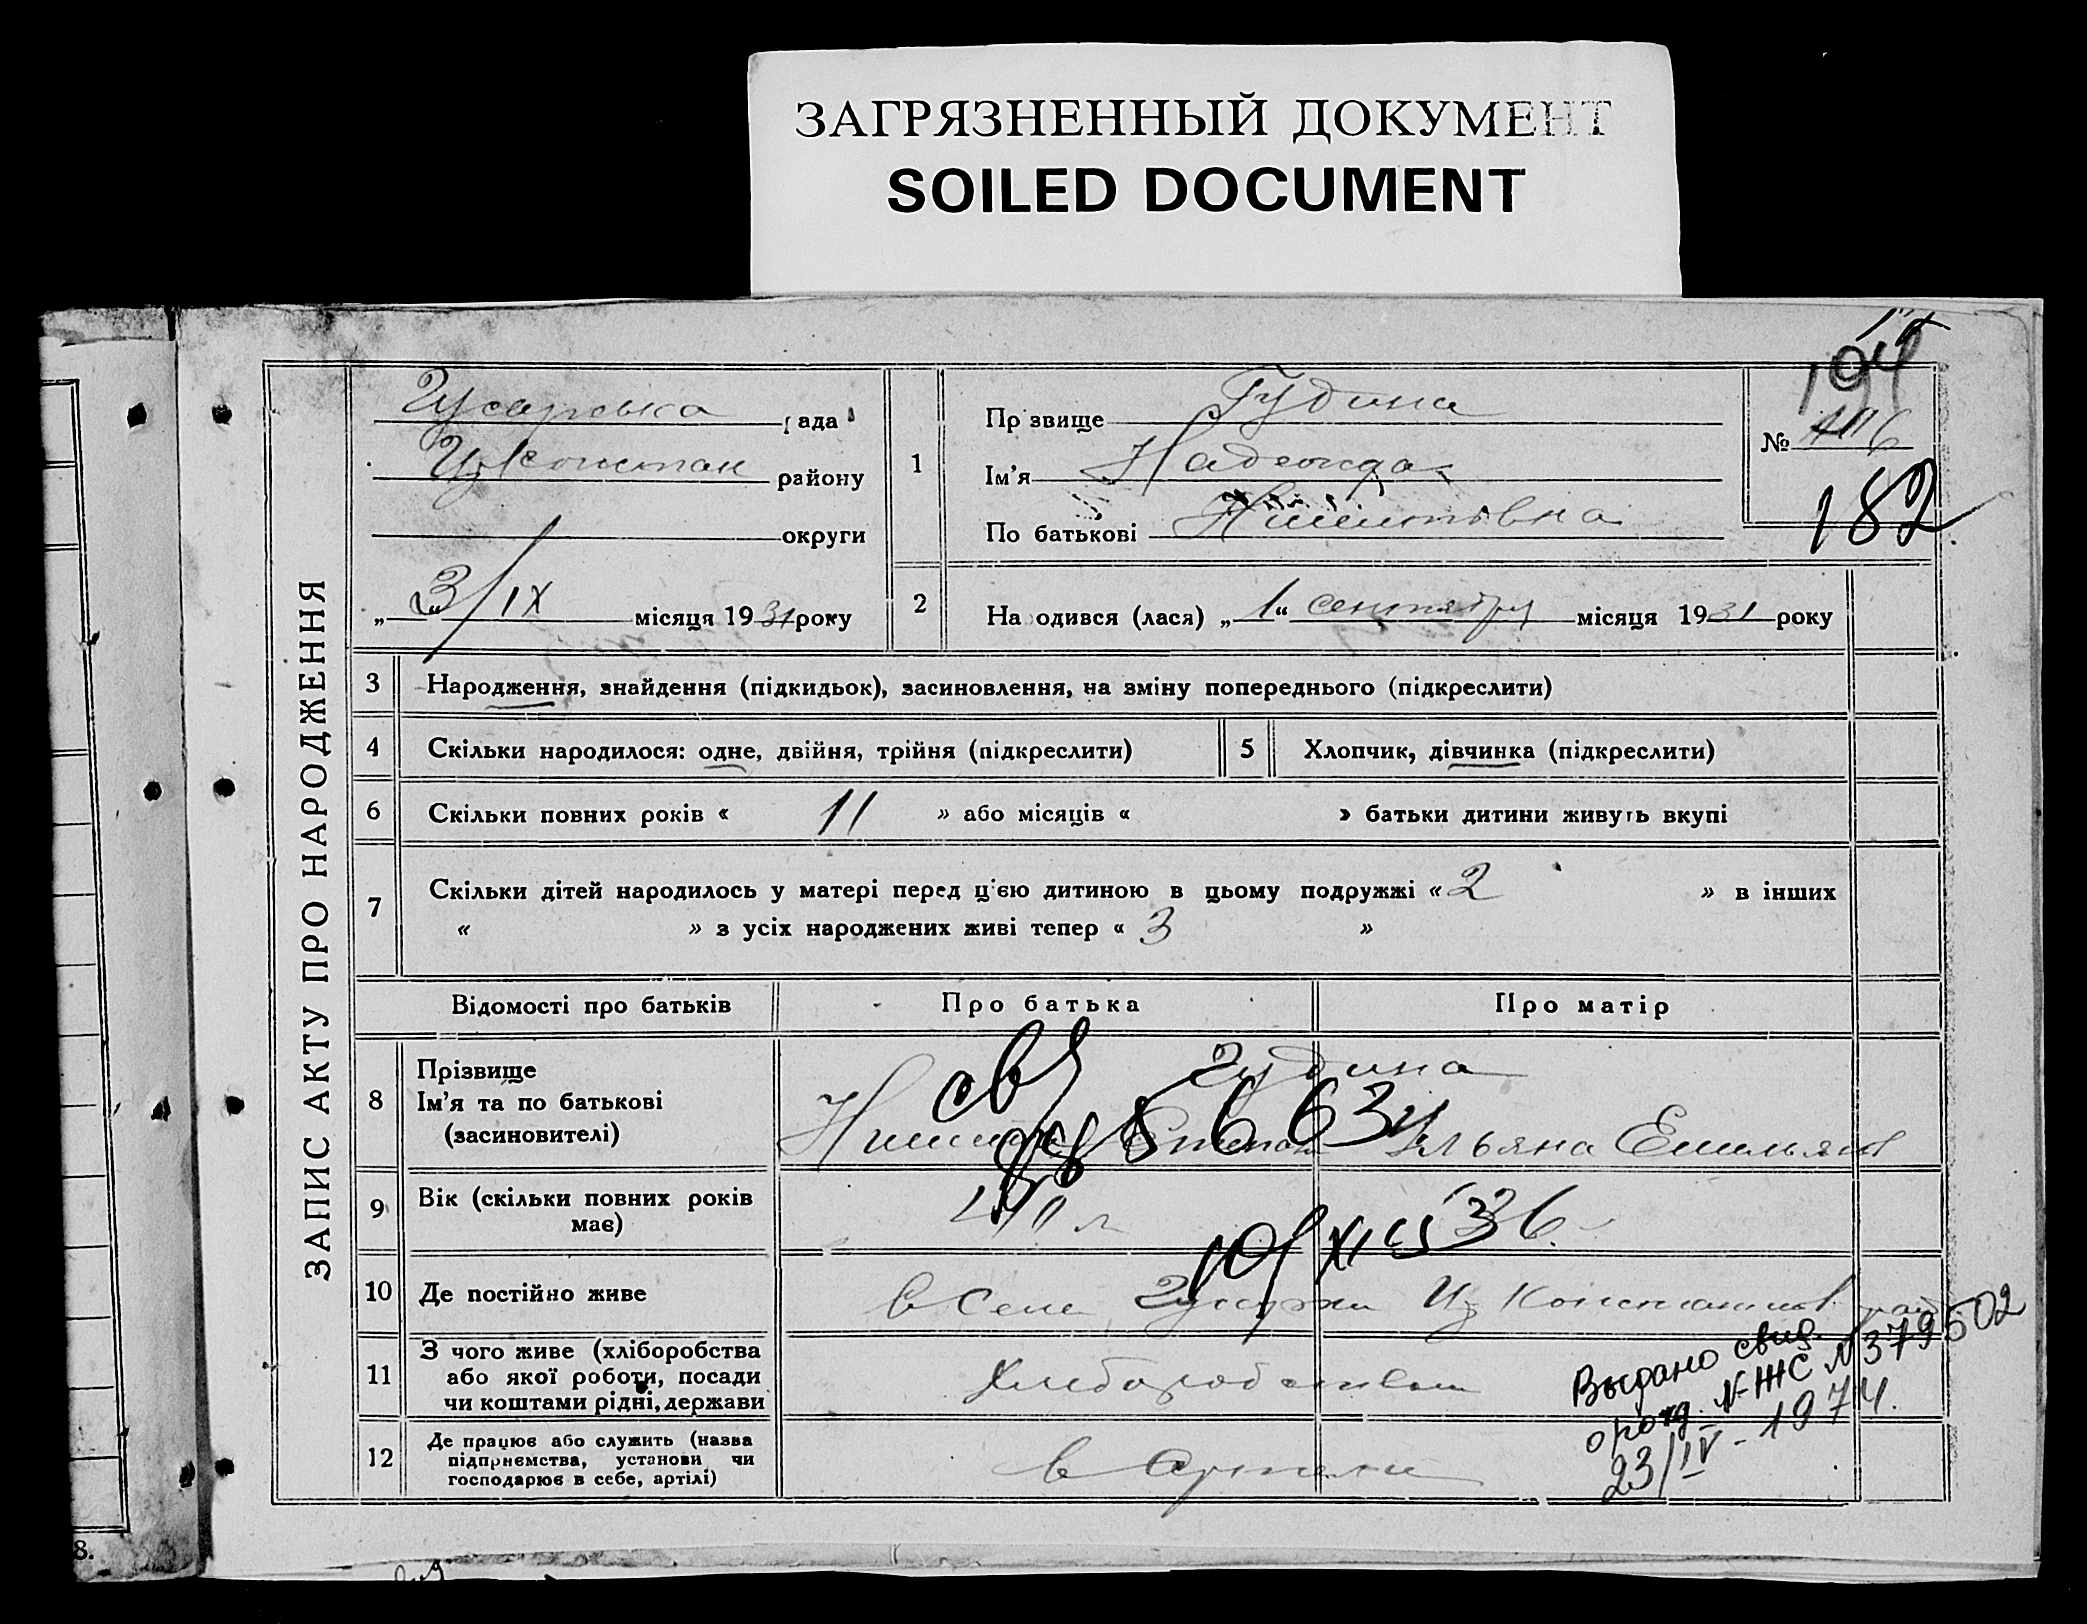 ЗАГРЯЗНЕННЫЙ ДОКУМЕНТ
SOILED DOCUMENT
ЗАПИС АКТУ ПРО НАРОДЖЕННЯ
Гусарська рада
району
округи
„3/IX місяця 1931 року
1
Прізвище Гудина
Ім'я Надежда
По батькові
№
182
2
Народився (лася) „1“ сентября місяця 1931 року
3
Народження, знайдення (підкидьок), засиновлення, на зміну попереднього (підкреслити)
4
Скільки народилося: одне, двійня, трійня (підкреслити)
5
Хлопчик, дівчинка (підкреслити)
6
Скільки повних років « 11 » або місяців « » батьки дитини живуть вкупі
7
Скільки дітей народилось у матері перед цією дитиною в цьому подружжі « 2 » в інших
« » з усіх народжених живі тепер « 3 »
Відомості про батьків
Про батька
Про матір
8
Прізвище
Ім'я та по батькові
(засиновителі)
Гудина
Ульяна Емельян
9
Вік (скільки повних років
має)
36
10
Де постійно живе
в селе
11
З чого живе (хліборобства
або якої роботи, посади
чи коштами рідні, держави
12
Де працює або служить (назва
підприємства, установи чи
господарює в себе, артілі)
в Артели
Выдано свид.
о рожд. №-ЖС №379502
23/IV-1974.
8.